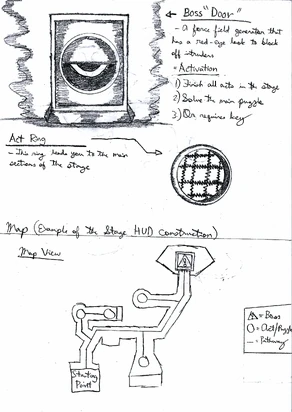 Boss "Door"
- A force field generator that
has a red-eye look to block
off intruders
- Activation
1) Finish all acts in the stage
2) Solve the main puzzle
3) Or requires key
Act Ring
- This ring leads you to the main
sections of the stage
Map (Example of the Stage HUD construction)
Map View
Starting
Point
= Boss
= Act/Puzzle
= Pathway